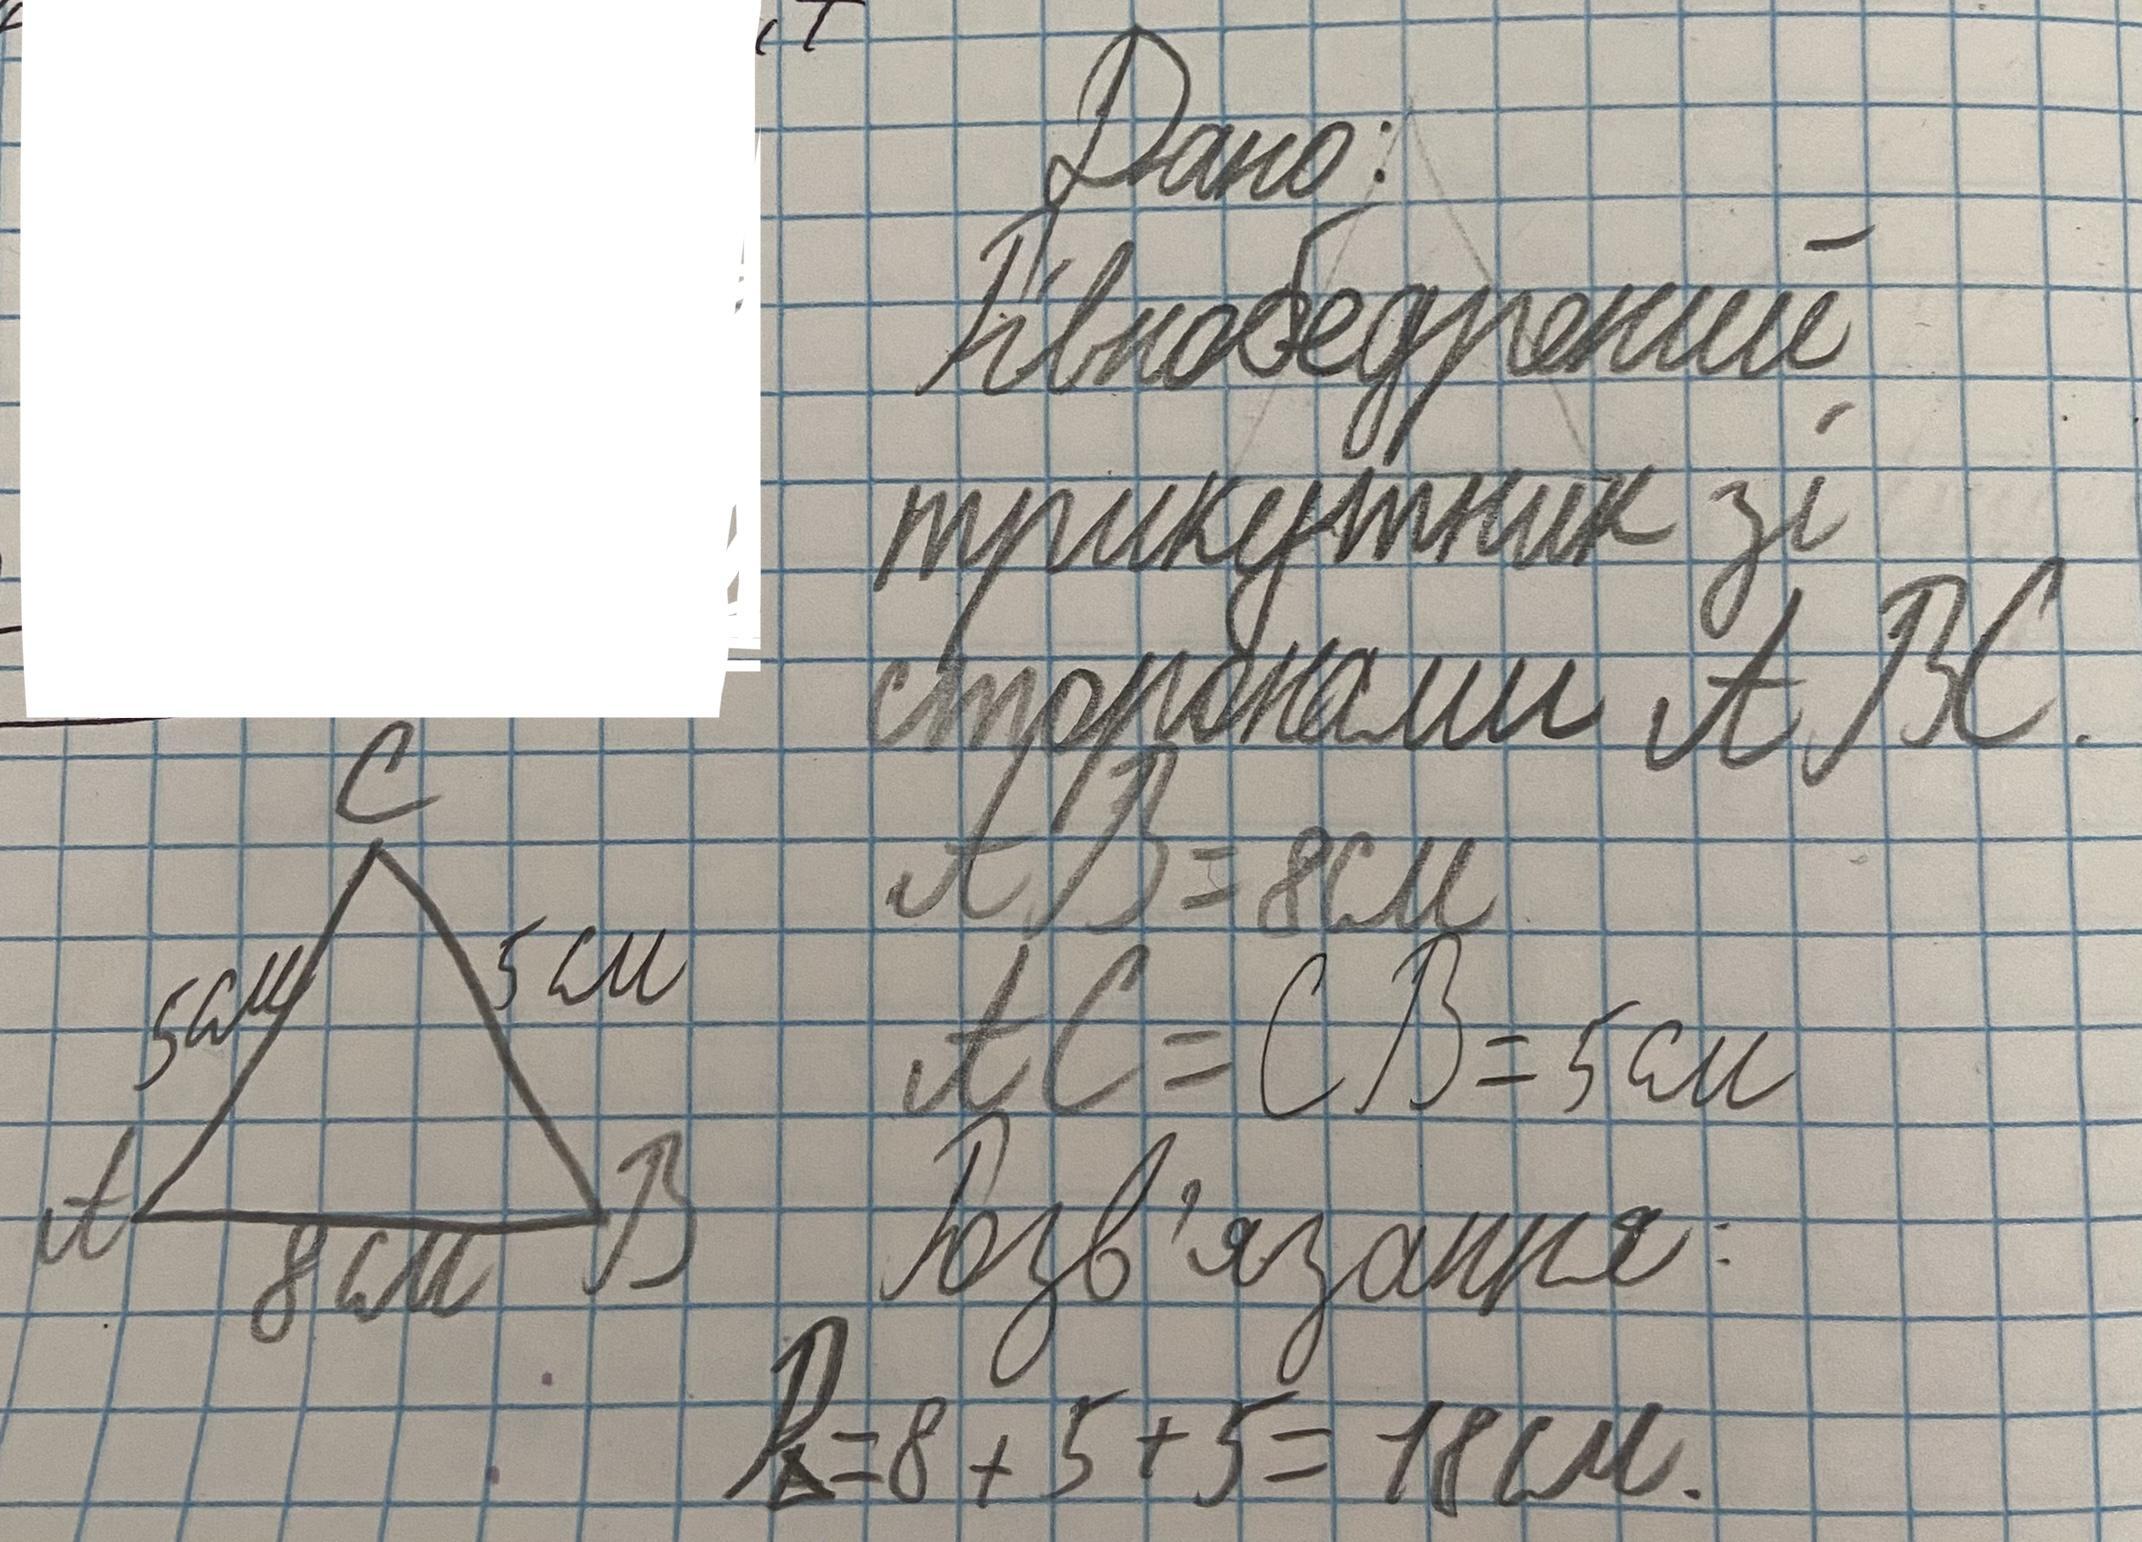 Дано:
Рівнобедрений
трикутник зі
сторонами ABC.
AB=8см
AC=CB=5см
Розв'язання:
P△=8+5+5=18см.
C
5см
5см
A
B
8см